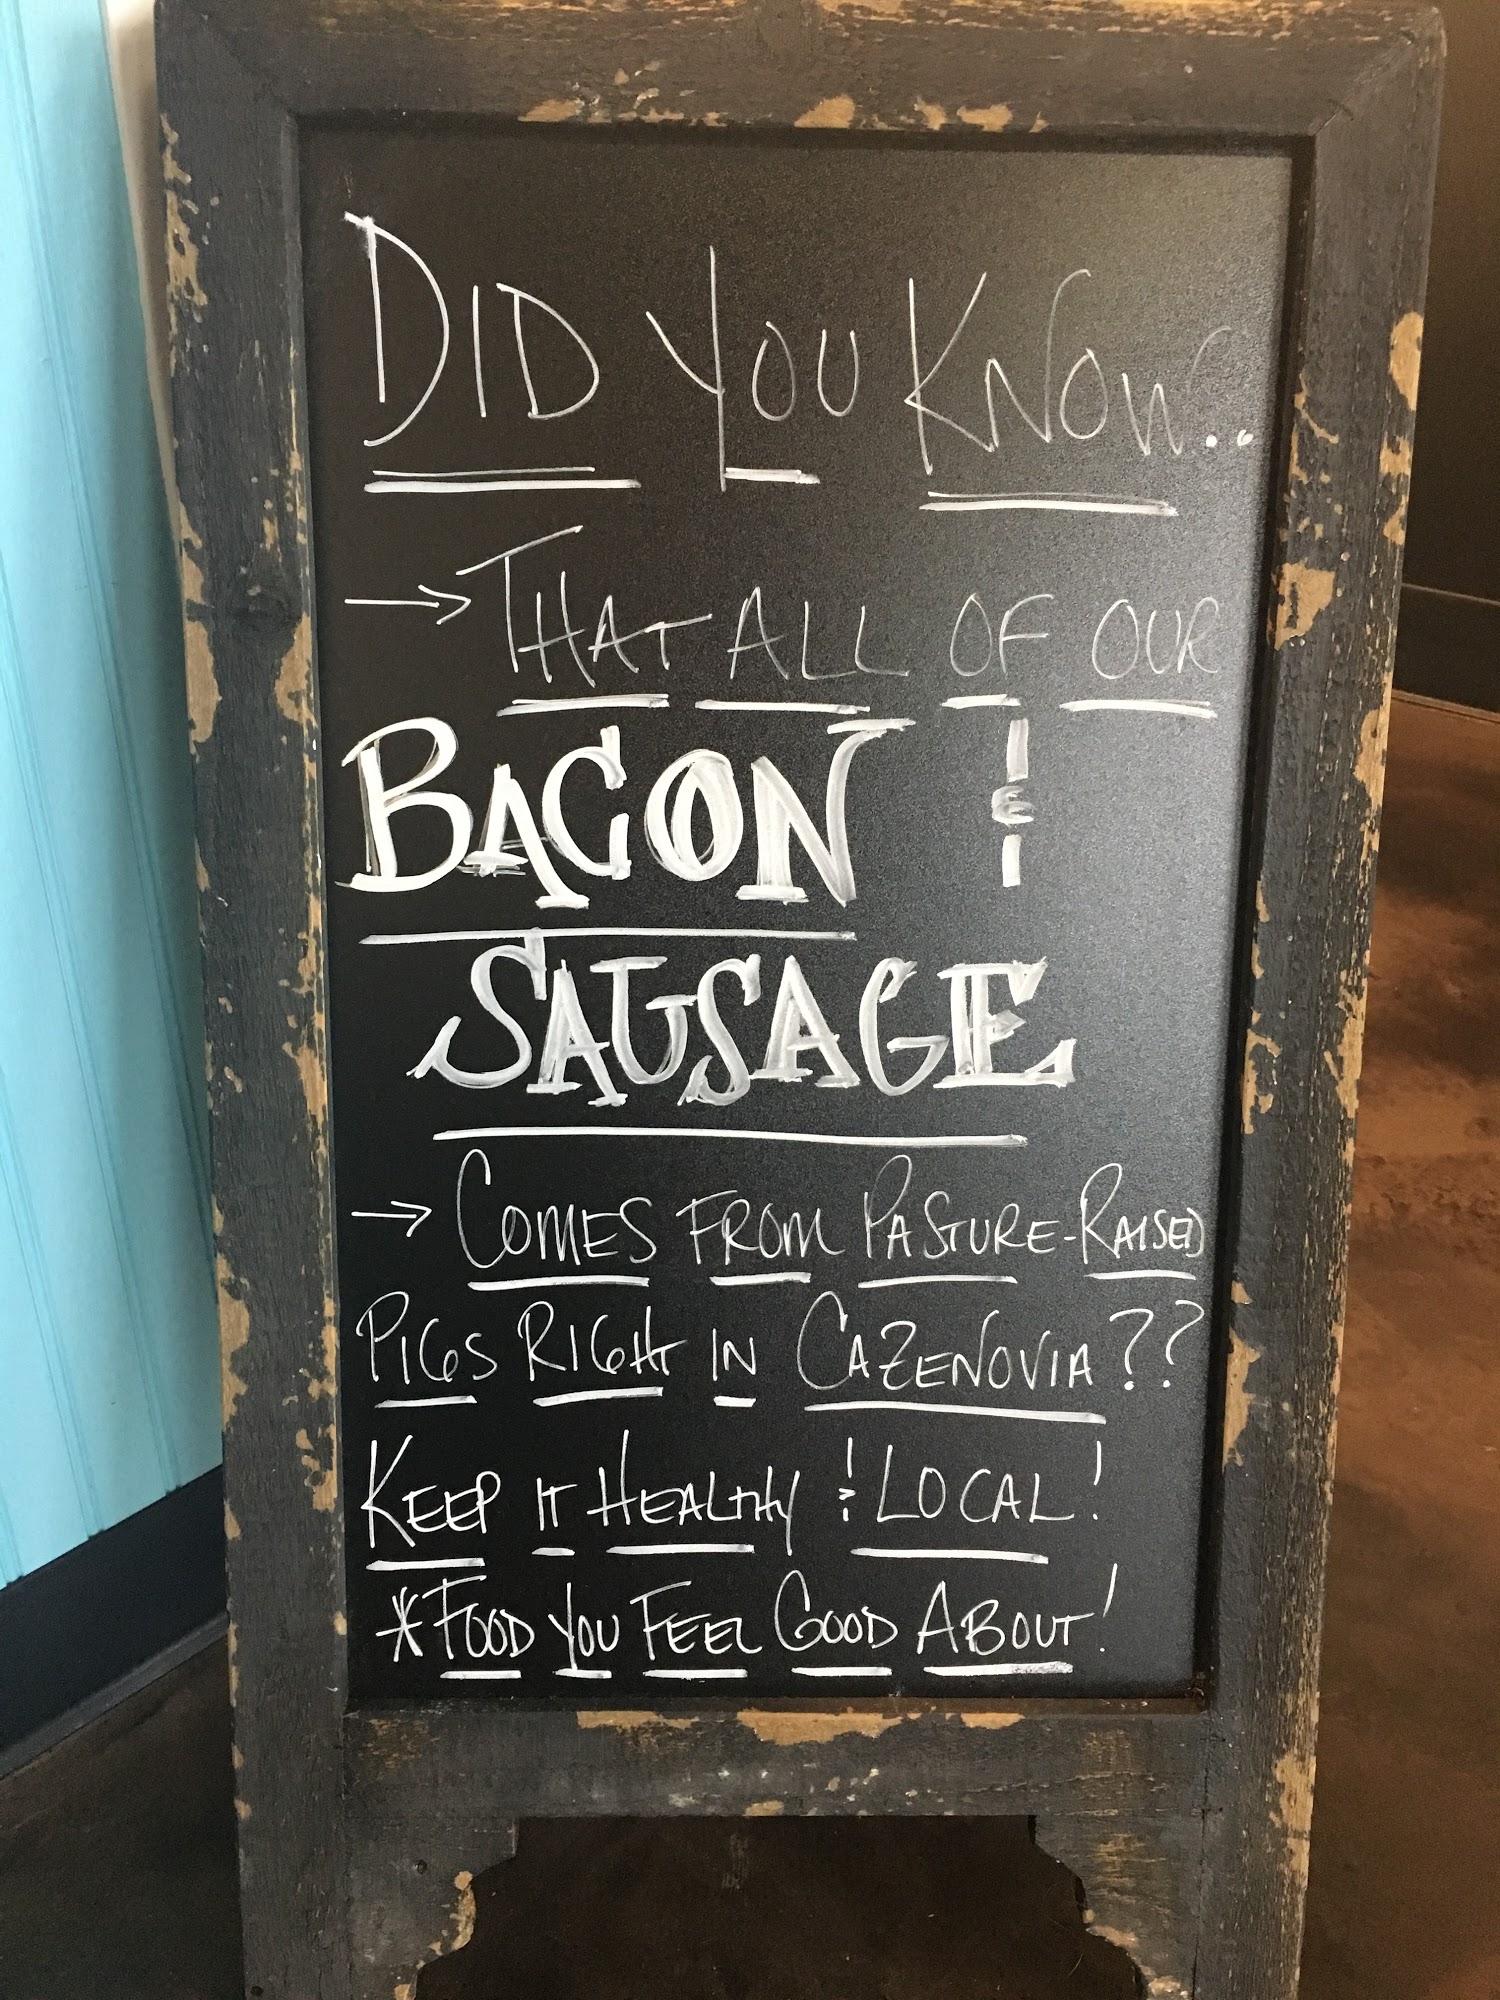 DID YOU KNOW...
→ THAT ALL OF OUR
BACON &
SAUSAGE
→ COMES FROM PASTURE-RAISED
PIGS RIGHT IN CAZENOVIA??
KEEP IT HEALTHY & LOCAL!
*FOOD YOU FEEL GOOD ABOUT!